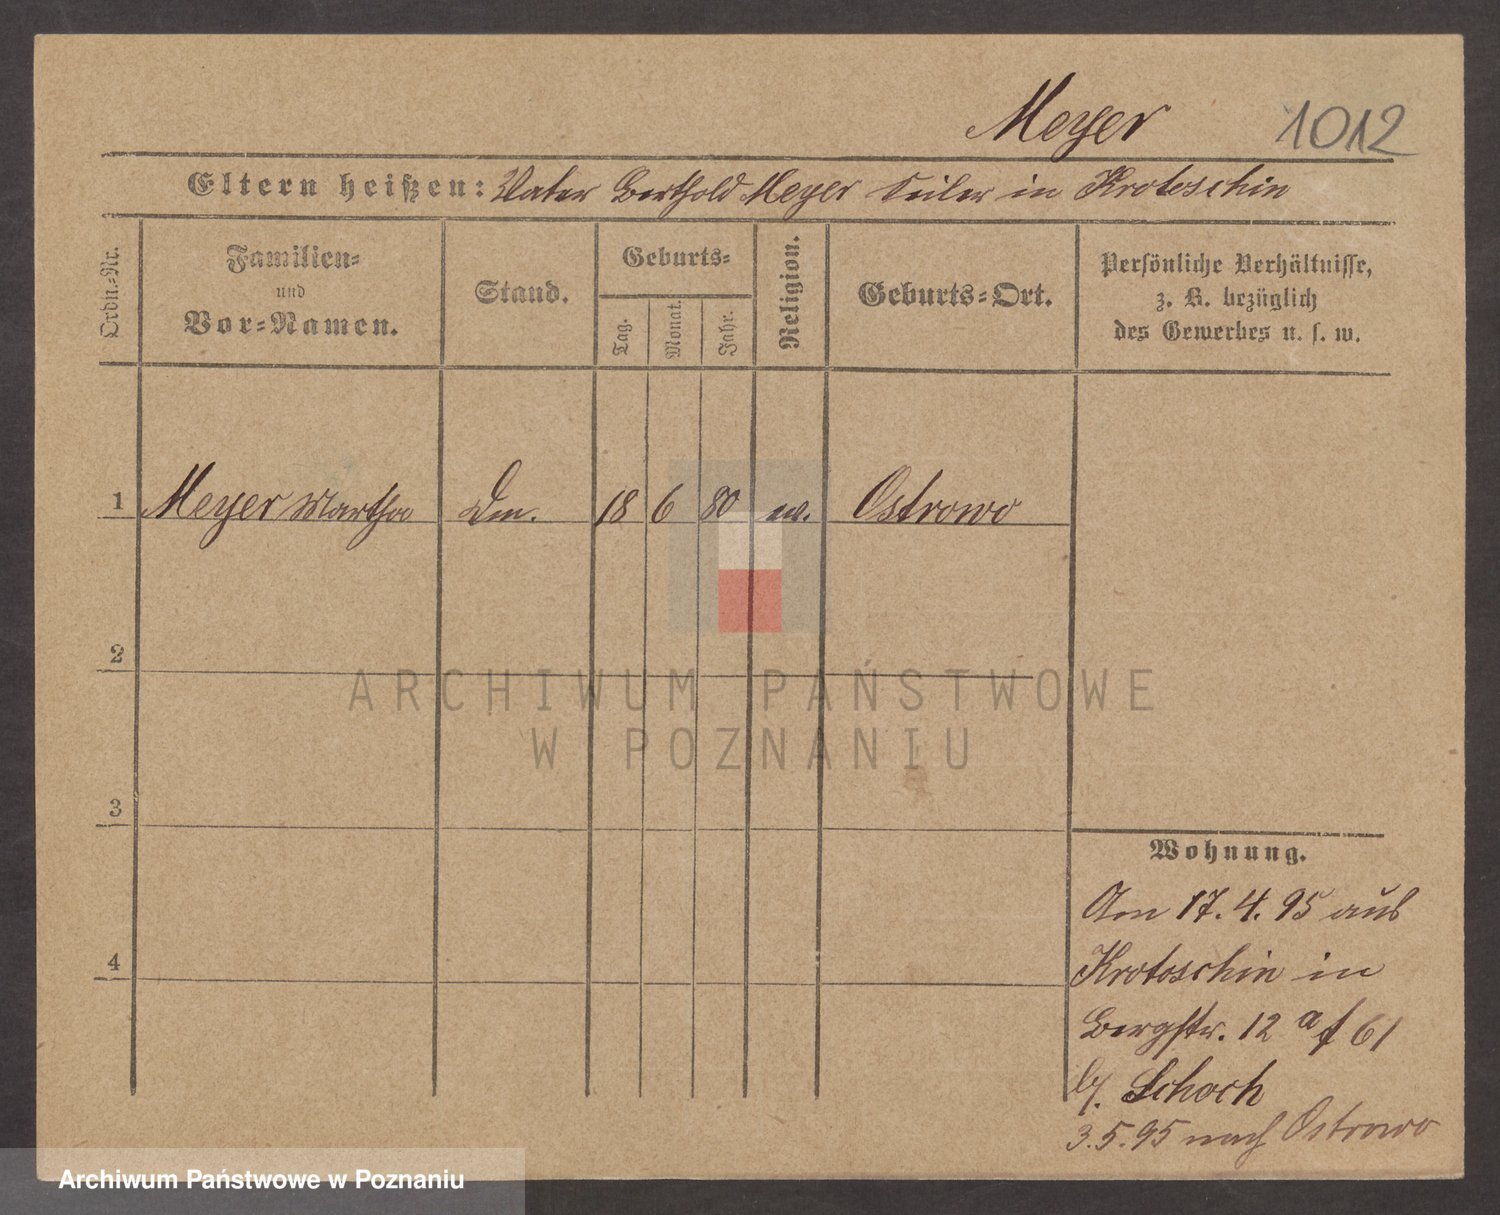 Meyer 1012
Eltern heißen: Vater Berthold Meyer Seiler in Krotoschin
Ordn.-Nr.
Familien-
und
Vor-Namen.
Stand.
Geburts-
Tag.
Monat.
Jahr.
Religion.
Geburts-Ort.
Persönliche Verhältnisse,
z. B. bezüglich
des Gewerbes u. s. w.
1 Meyer Martha 18 6 80 ev. Ostrowo
2
3
4
Wohnung.
Am 17.4.95 aus
Krotoschin in
Bergstr. 12 a f 61
b/. Schoch
3.5.95 nach Ostrowo
ARCHIWUM PAŃSTWOWE
W POZNANIU
Archiwum Państwowe w Poznaniu